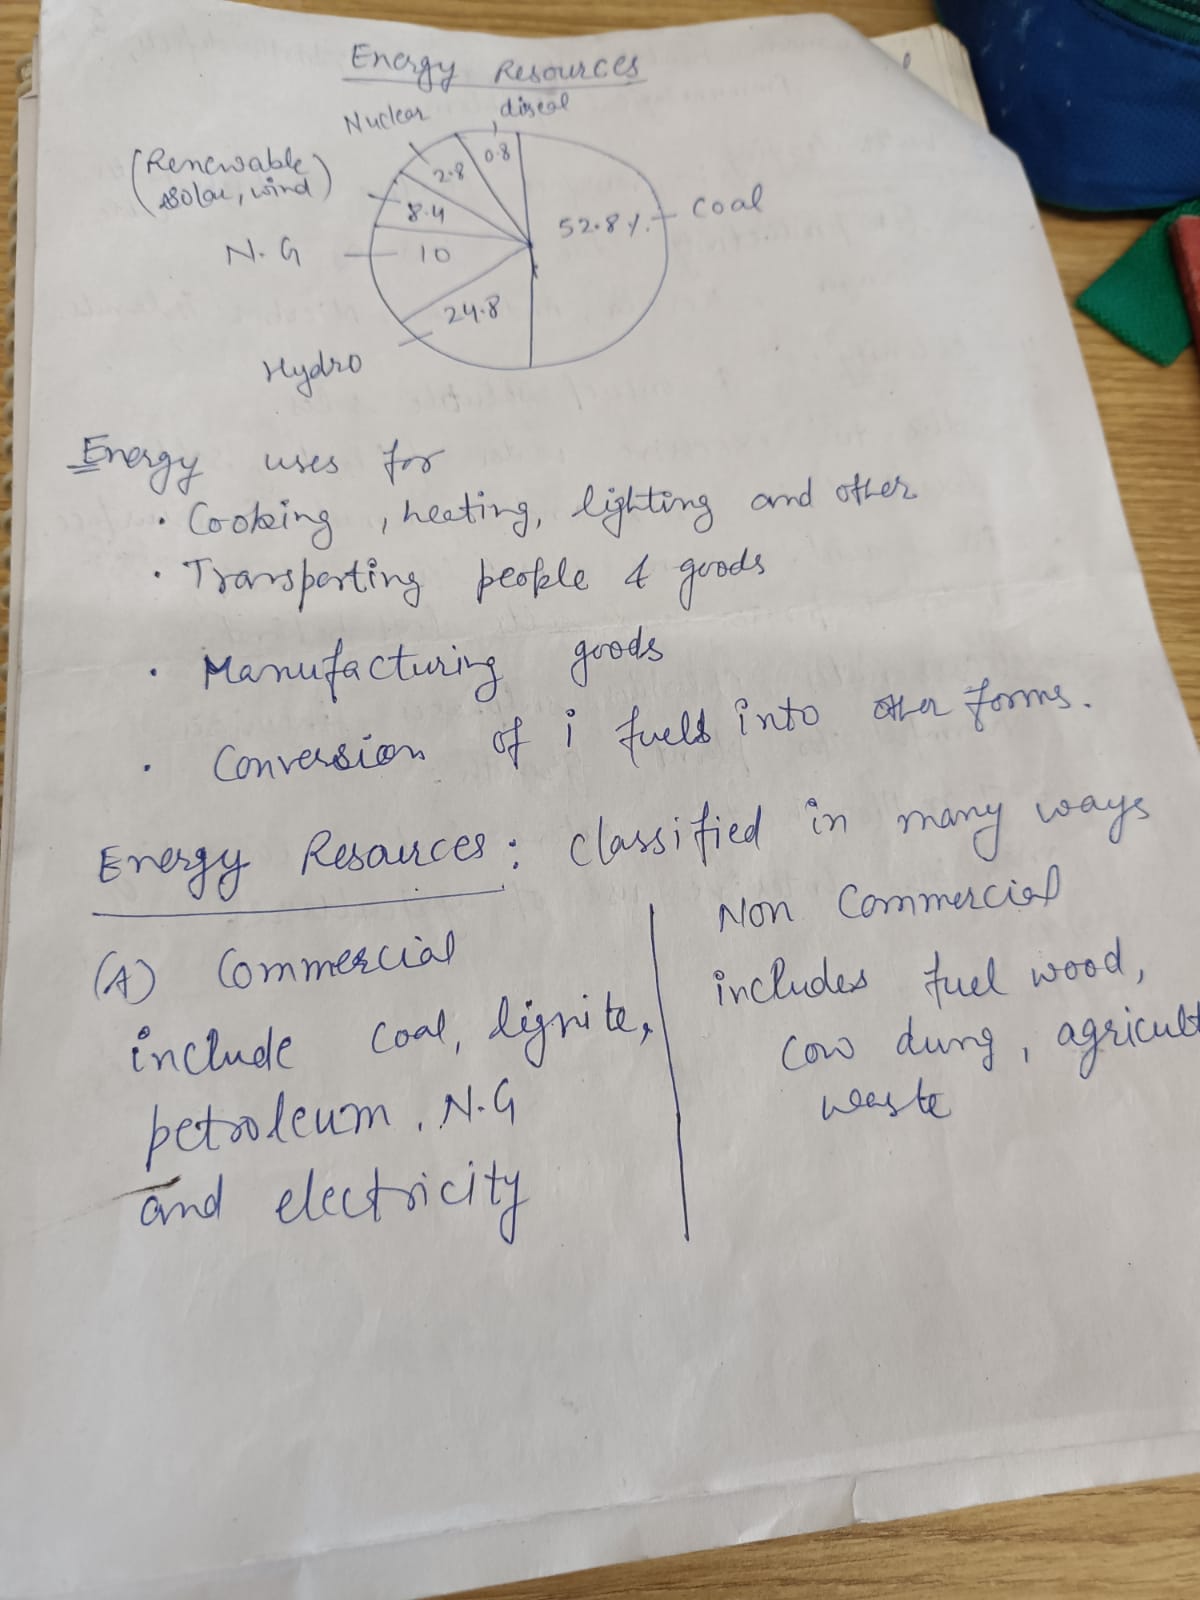 Energy Resources
Nuclear
diseal
(Renewable
solar, wind)
2.8
0.8
8.4
52.8%.
Coal
N.G
10
24.8
Hydro
Energy uses for
• Cooking, heating, lighting and other
• Transporting people & goods
• Manufacturing goods
• Conversion of i fuels into other forms.
Energy Resources : classified in many ways
(A) Commercial
include coal, lignite,
petroleum, N.G
and electricity
Non Commercial
includes fuel wood,
cow dung, agricult
waste